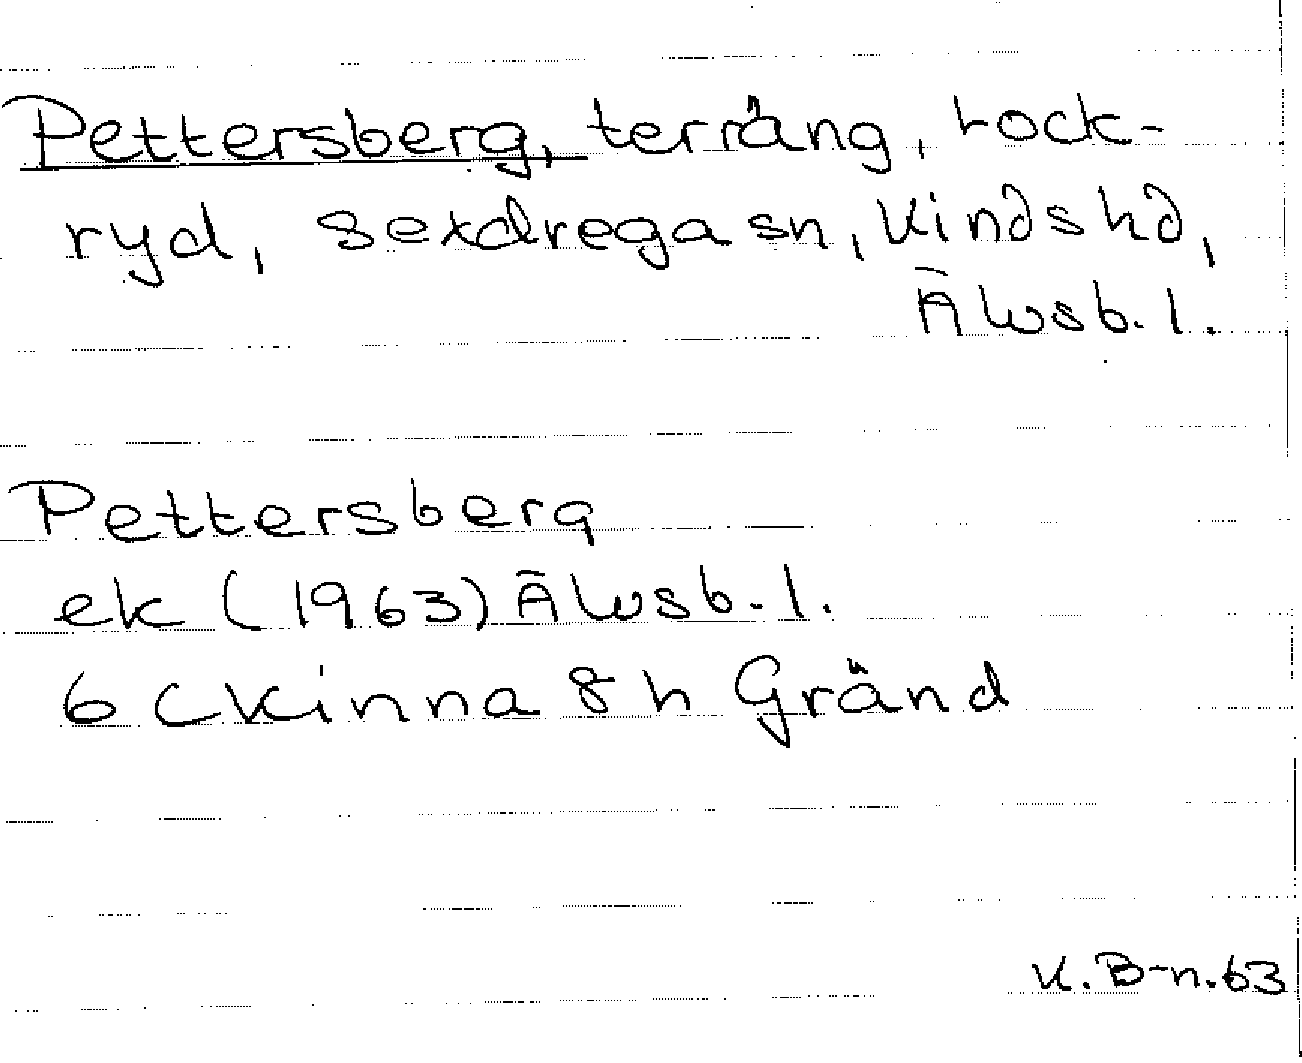 Pettersberg, terräng, tock-
ryd, Sexdrega sn, Kinds hd,
Älvsb. l.
Pettersberg
ek (1963) Älvsb. l.
6 C Kinna 8 h Gränd
K. B-n. 63